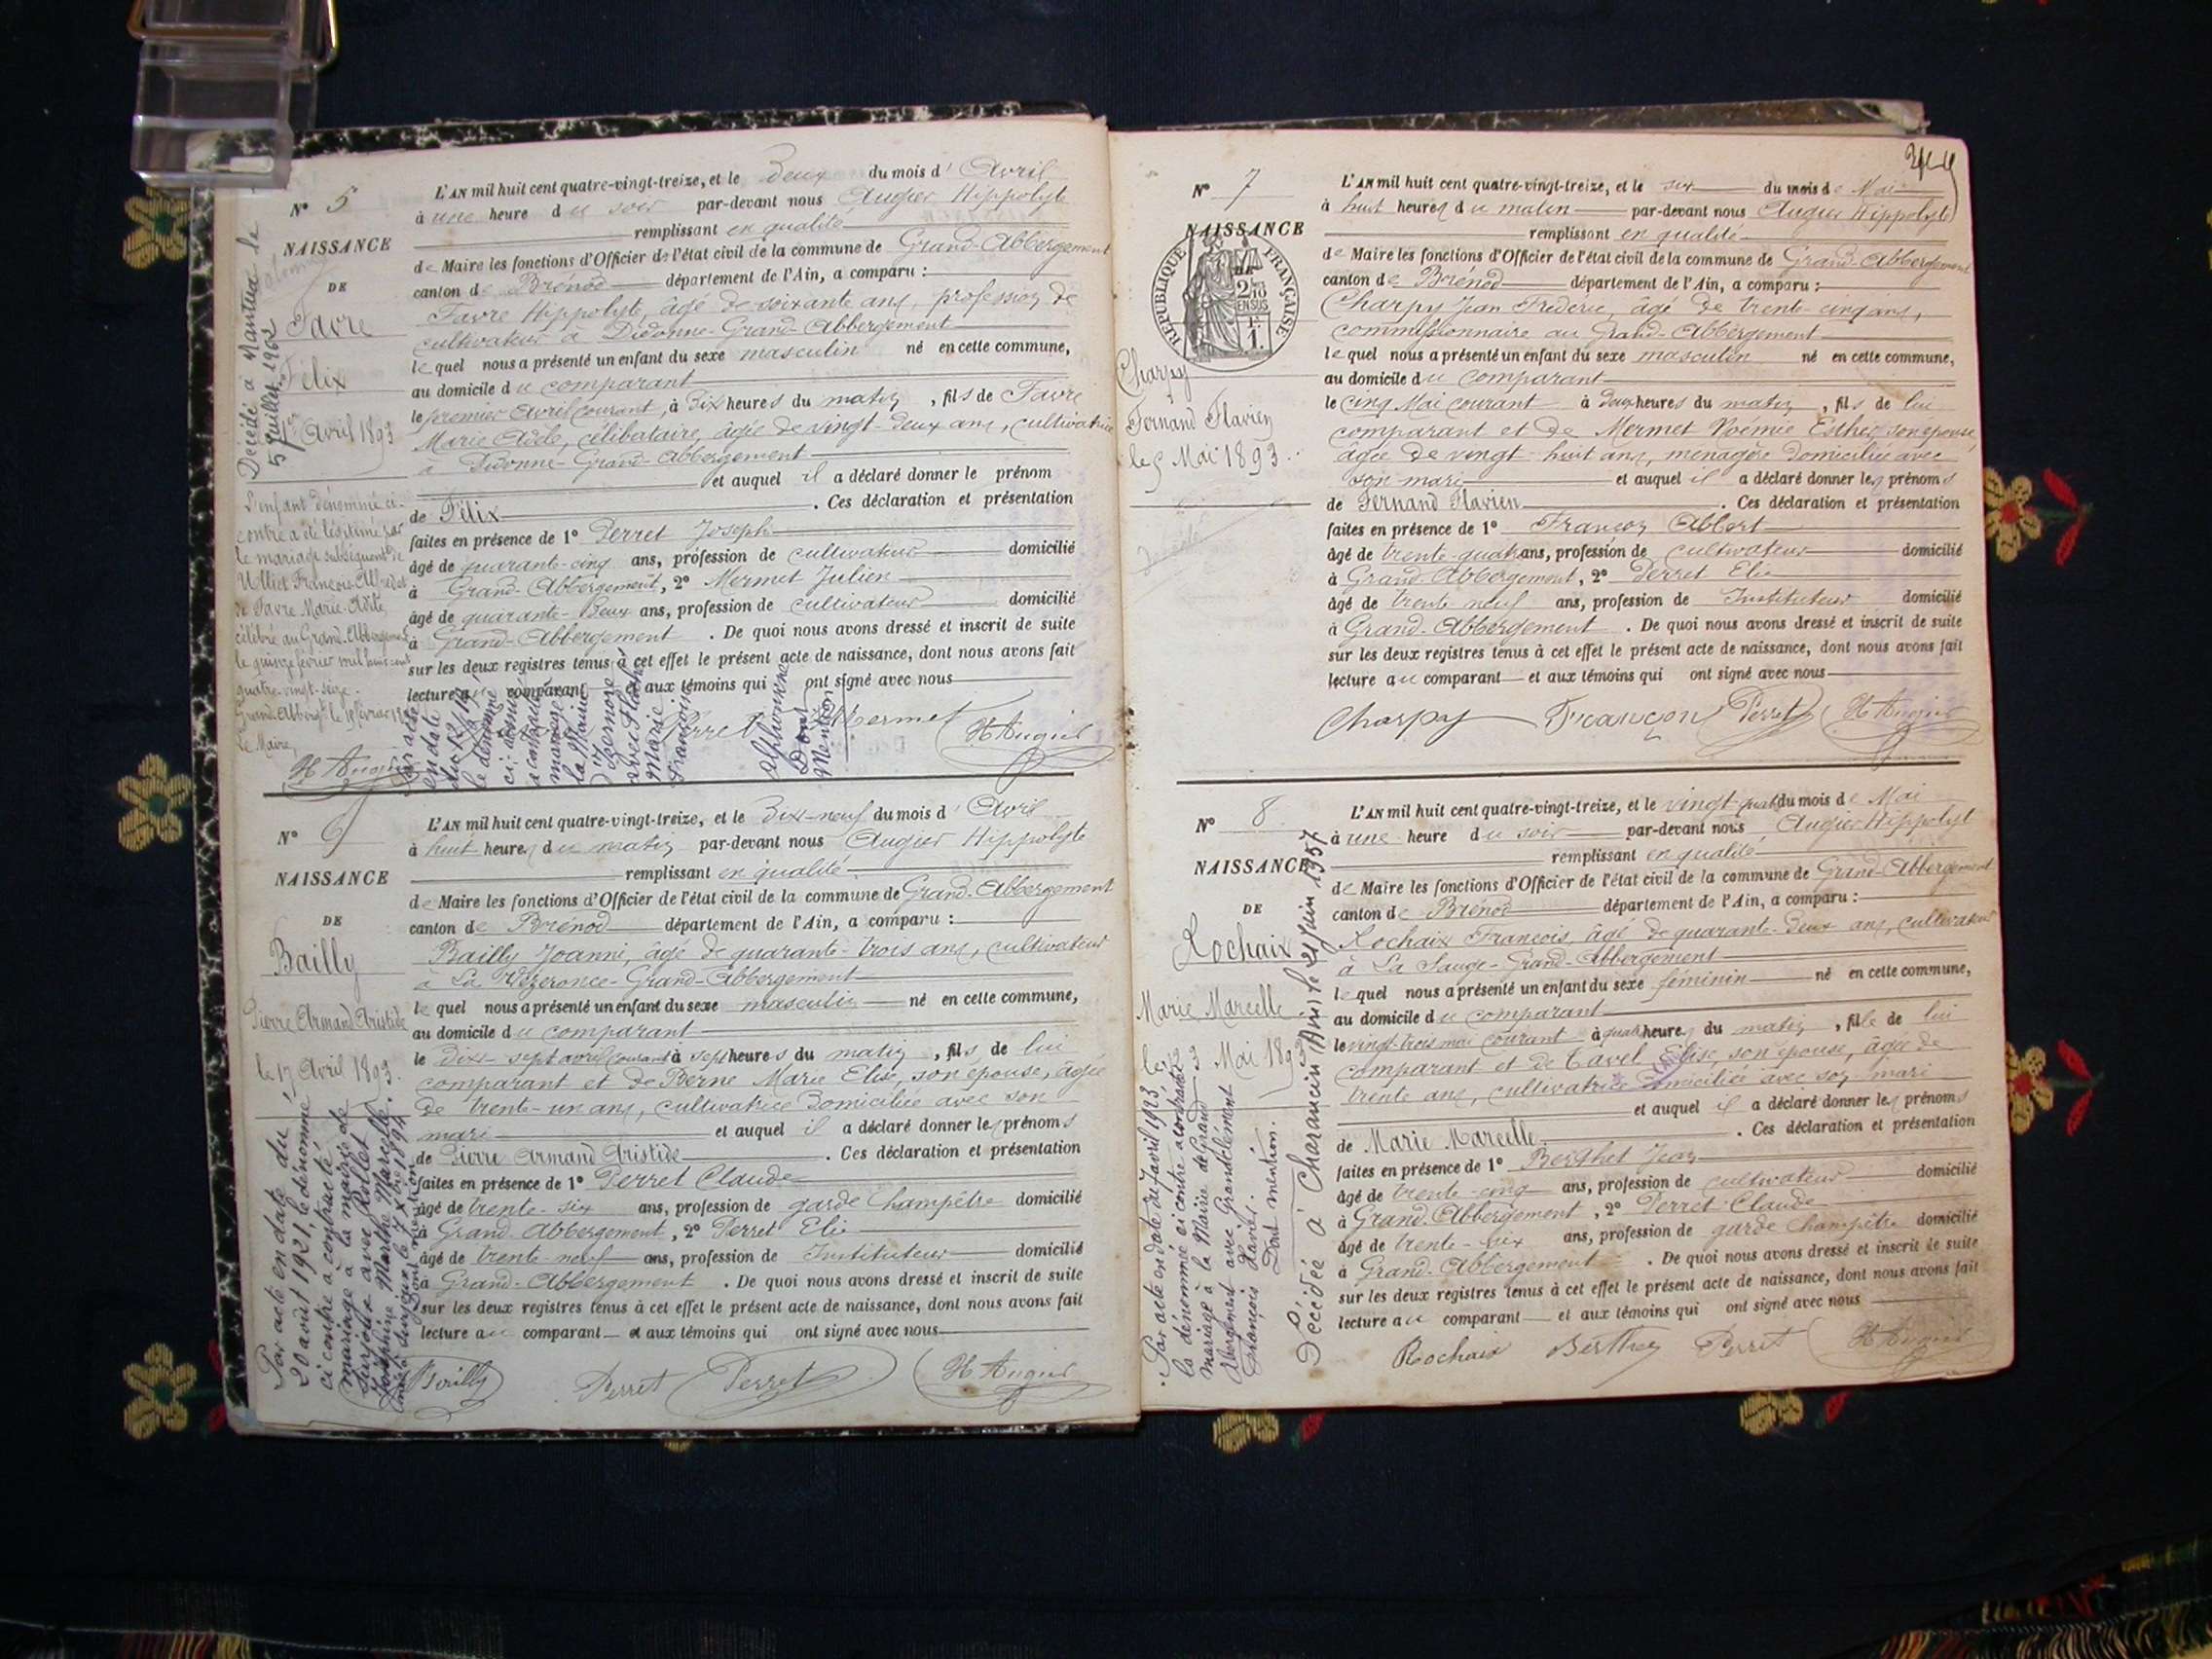 N° 5
NAISSANCE
DE
Favre
Félix
1er Avril 1893
Décédé à Nantua le
5 Juillet 1962
L'enfant dénommé ci-
contre a été légitimé par
le mariage subséquent de
Ulliet François Alfred et
de Favre Marie Adèle,
célébré au Grand-Abbergement
le quinze février mil huit cent
quatre-vingt-seize.
Le Maire,
H Augier
L'AN mil huit cent quatre-vingt-treize, et le deux du mois d'Avril
à une heure du soir par-devant nous Augier Hippolyte
remplissant en qualité
de Maire les fonctions d'Officier de l'état civil de la commune de Grand-Abbergement
canton de Brénod département de l'Ain, a comparu :
Favre Hippolyte, âgé de soixante ans, profession de
cultivateur à Didonne-Grand-Abbergement
lequel nous a présenté un enfant du sexe masculin né en cette commune,
au domicile du comparant
le premier Avril courant, à dix heures du matin, fils de Favre
Marie Adèle, célibataire, âgée de vingt-deux ans, cultivatrice
à Didonne-Grand-Abbergement
et auquel il a déclaré donner le prénom
de Félix. Ces déclaration et présentation
faites en présence de 1° Perret Joseph
âgé de quarante-cinq ans, profession de cultivateur domicilié
à Grand-Abbergement, 2° Mermet Julien
âgé de quarante-deux ans, profession de cultivateur domicilié
à Grand-Abbergement. De quoi nous avons dressé et inscrit de suite
sur les deux registres tenus à cet effet le présent acte de naissance, dont nous avons fait
lecture au comparant aux témoins qui ont signé avec nous
Perret Mermet H Augier
Par acte
en date
le dénommé
ci-contre
a contracté
mariage à
la Mairie
d'Izernore
avec
Marie
Françoise
Alphonsine
Dont
Mention
N° 6
NAISSANCE
DE
Bailly
Pierre Armand Aristide
le 17 Avril 1893.
Par acte en date du
20 août 1921, le dénommé
ci contre a contracté
mariage à la mairie de
avec Rollet
Joséphine Marthe Marcelle.
Dont mention
L'AN mil huit cent quatre-vingt-treize, et le dix-neuf du mois d'Avril
à huit heures du matin par-devant nous Augier Hippolyte
remplissant en qualité
de Maire les fonctions d'Officier de l'état civil de la commune de Grand-Abbergement
canton de Brénod département de l'Ain, a comparu :
Bailly Joanni, âgé de quarante-trois ans, cultivateur
à La Vézeronce-Grand-Abbergement
lequel nous a présenté un enfant du sexe masculin né en cette commune,
au domicile du comparant
le dix-sept avril courant à sept heures du matin, fils de lui
comparant et de Berne Marie Elise, son épouse, âgée
de trente-un ans, cultivatrice domiciliée avec son
mari et auquel il a déclaré donner les prénoms
de Pierre Armand Aristide. Ces déclaration et présentation
faites en présence de 1° Perret Claude
âgé de trente-six ans, profession de garde champêtre domicilié
à Grand Abbergement, 2° Perret Elie
âgé de trente-neuf ans, profession de Instituteur domicilié
à Grand-Abbergement. De quoi nous avons dressé et inscrit de suite
sur les deux registres tenus à cet effet le présent acte de naissance, dont nous avons fait
lecture au comparant et aux témoins qui ont signé avec nous
Bailly Perret Perret H Augier
N° 7
NAISSANCE
DE
RÉPUBLIQUE FRANÇAISE
2/10 EN SUS
Charpy
Fernand Flavien
le 5 Mai 1893
L'AN mil huit cent quatre-vingt-treize, et le six du mois de Mai
à huit heures du matin par-devant nous Augier Hippolyte
remplissant en qualité
de Maire les fonctions d'Officier de l'état civil de la commune de Grand-Abbergement
canton de Brénod département de l'Ain, a comparu :
Charpy Jean Frédéric, âgé de trente-cinq ans,
commissionnaire au Grand-Abbergement
lequel nous a présenté un enfant du sexe masculin né en cette commune,
au domicile du comparant
le cinq Mai courant à deux heures du matin, fils de lui
comparant et de Mermet Noémie Esther, son épouse,
âgée de vingt-huit ans, ménagère domiciliée avec
son mari et auquel il a déclaré donner les prénoms
de Fernand Flavien. Ces déclaration et présentation
faites en présence de 1° Françon Albert
âgé de trente-quatre ans, profession de cultivateur domicilié
à Grand Abbergement, 2° Perret Elie
âgé de trente neuf ans, profession de Instituteur domicilié
à Grand-Abbergement. De quoi nous avons dressé et inscrit de suite
sur les deux registres tenus à cet effet le présent acte de naissance, dont nous avons fait
lecture au comparant et aux témoins qui ont signé avec nous
Charpy Françon Perret H Augier
N° 8
NAISSANCE
DE
Rochaix
Marie Marcelle
le 23 Mai 1893
Par acte en date du 7 avril 1923
la dénommée ci contre a contracté
mariage à la Mairie de Grand
Abergement avec Grandclément
François Xavier.
Dont mention.
Décédée à Charancin Ain le 25 juin 1957
L'AN mil huit cent quatre-vingt-treize, et le vingt-quatre du mois de Mai
à une heure du soir par-devant nous Augier Hippolyte
remplissant en qualité
de Maire les fonctions d'Officier de l'état civil de la commune de Grand-Abbergement
canton de Brénod département de l'Ain, a comparu :
Rochaix François, âgé de quarante-deux ans, cultivateur
à La Sauge-Grand-Abbergement
lequel nous a présenté un enfant du sexe féminin né en cette commune,
au domicile du comparant
le vingt-trois mai courant à quatre heures du matin, fille de lui
comparant et de Tavel Elise, son épouse, âgée de
trente ans, cultivatrice domiciliée avec son mari
et auquel il a déclaré donner les prénoms
de Marie Marcelle. Ces déclaration et présentation
faites en présence de 1° Berthet Jean
âgé de trente-cinq ans, profession de cultivateur domicilié
à Grand-Abbergement, 2° Perret Claude
âgé de trente-six ans, profession de garde champêtre domicilié
à Grand-Abbergement. De quoi nous avons dressé et inscrit de suite
sur les deux registres tenus à cet effet le présent acte de naissance, dont nous avons fait
lecture au comparant et aux témoins qui ont signé avec nous
Rochaix Berthet Perret H Augier